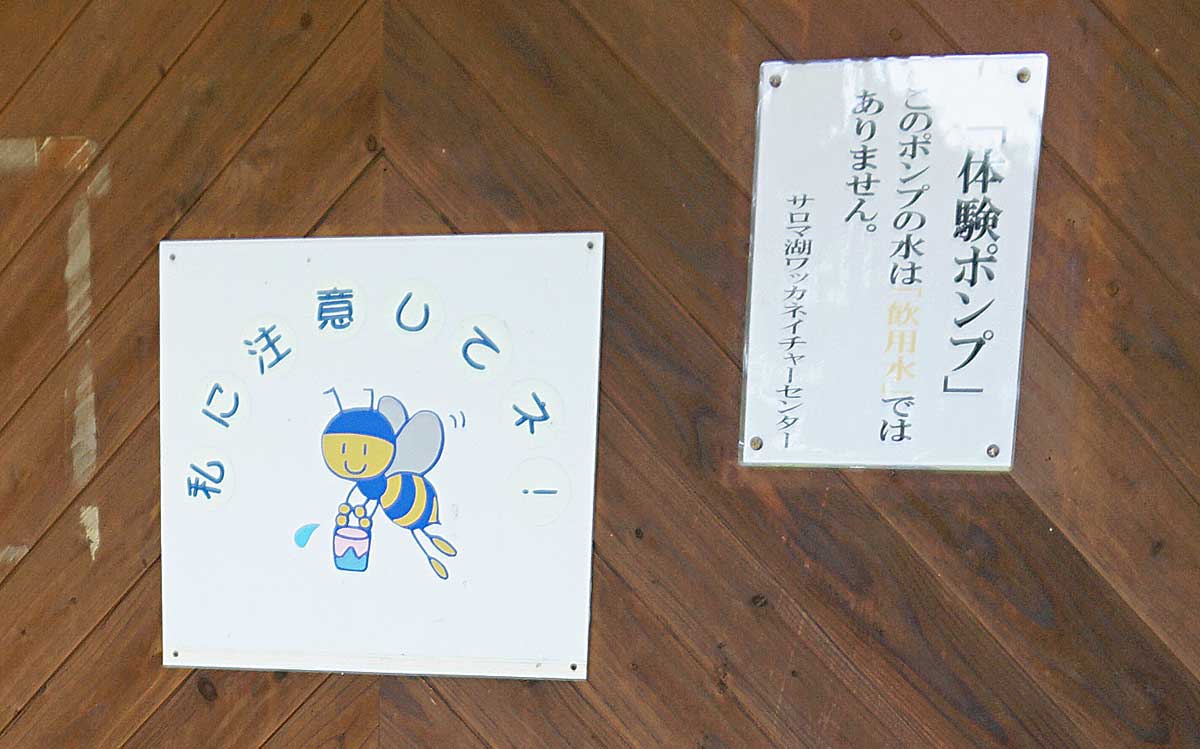 私に注意してネ!
「体験ポンプ」
このポンプの水は「飲用水」では
ありません。
サロマ湖ワッカネイチャーセンター